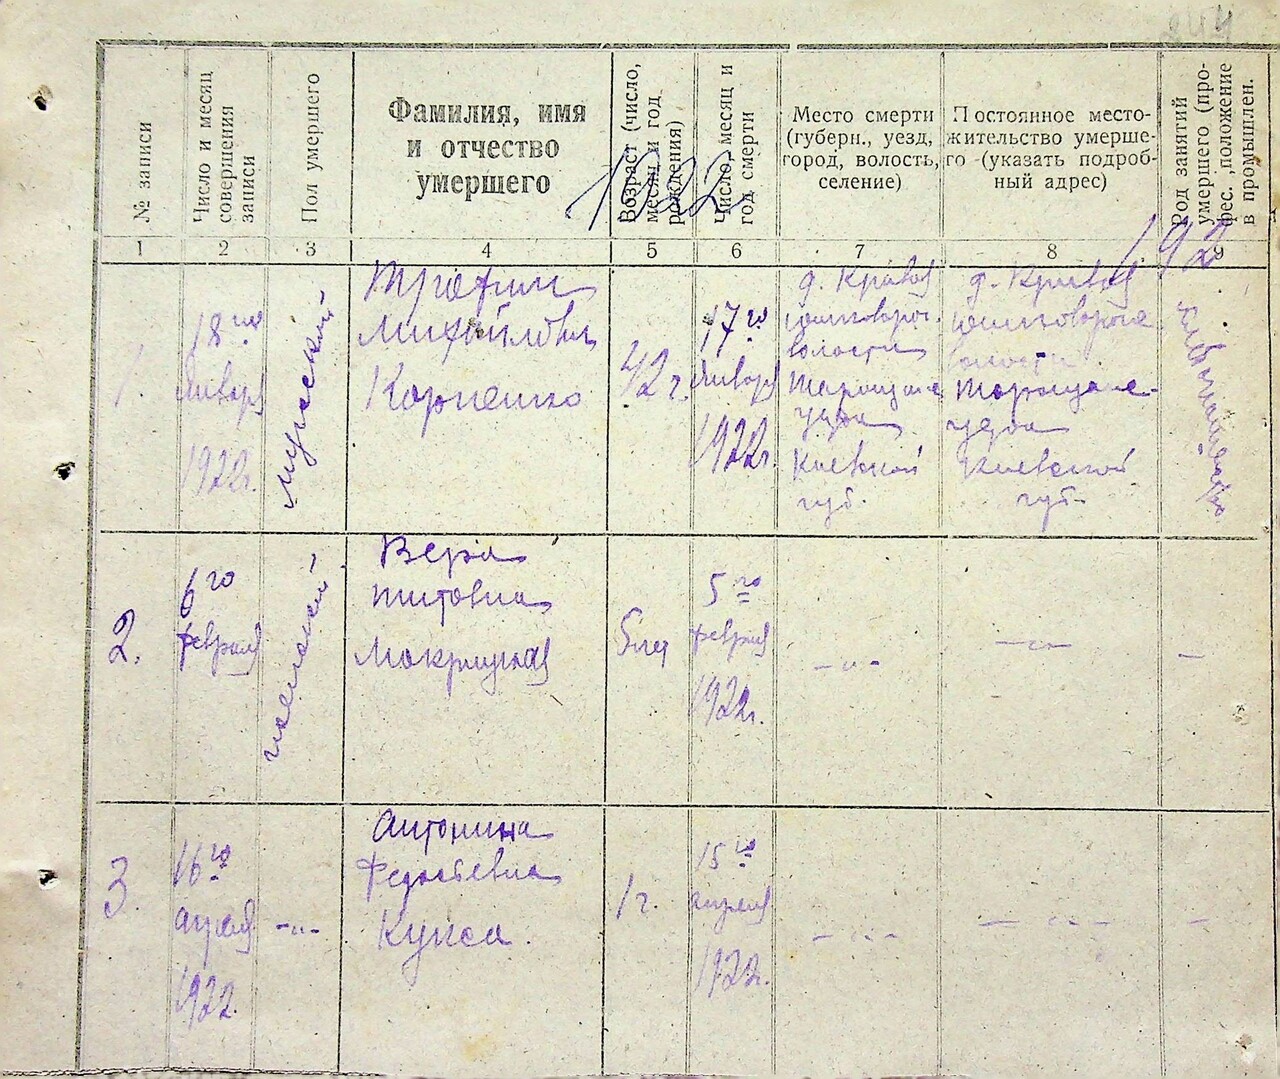 № записи
Число и месяц
совершения
записи
Пол умершего
Фамилия, имя
и отчество
умершего
Возраст (число,
месяц и год
рождения)
Число, месяц и
год смерти
Место смерти
(губерн., уезд,
город, волость,
селение)
Постоянное место-
жительство умерше-
го (указать подроб-
ный адрес)
Род занятий
умершего (про-
фес., положение
в промышлен.
1922
192
1 2 3 4 5 6 7 8 9
1.
18 го
января
1922г.
мужеский
Трофим
Михайлович
Корненко
42 г.
17 го
января
1922г.
д. Кривая
волости
Таращан.
уезда
Киевской
губ.
д. Кривая
волости
Таращан-
уезда
Киевской
губ.
2.
6 го
февраля
женский
Вера
Титовна
Мокрицкая
5 лет
5 го
февраля
1922г.
- " -
- " -
-
3.
16 го
апреля
1922
- " -
Антонина
Федосеевна
Кукса.
1 г.
15 го
апреля
1922г.
- " -
- " -
-